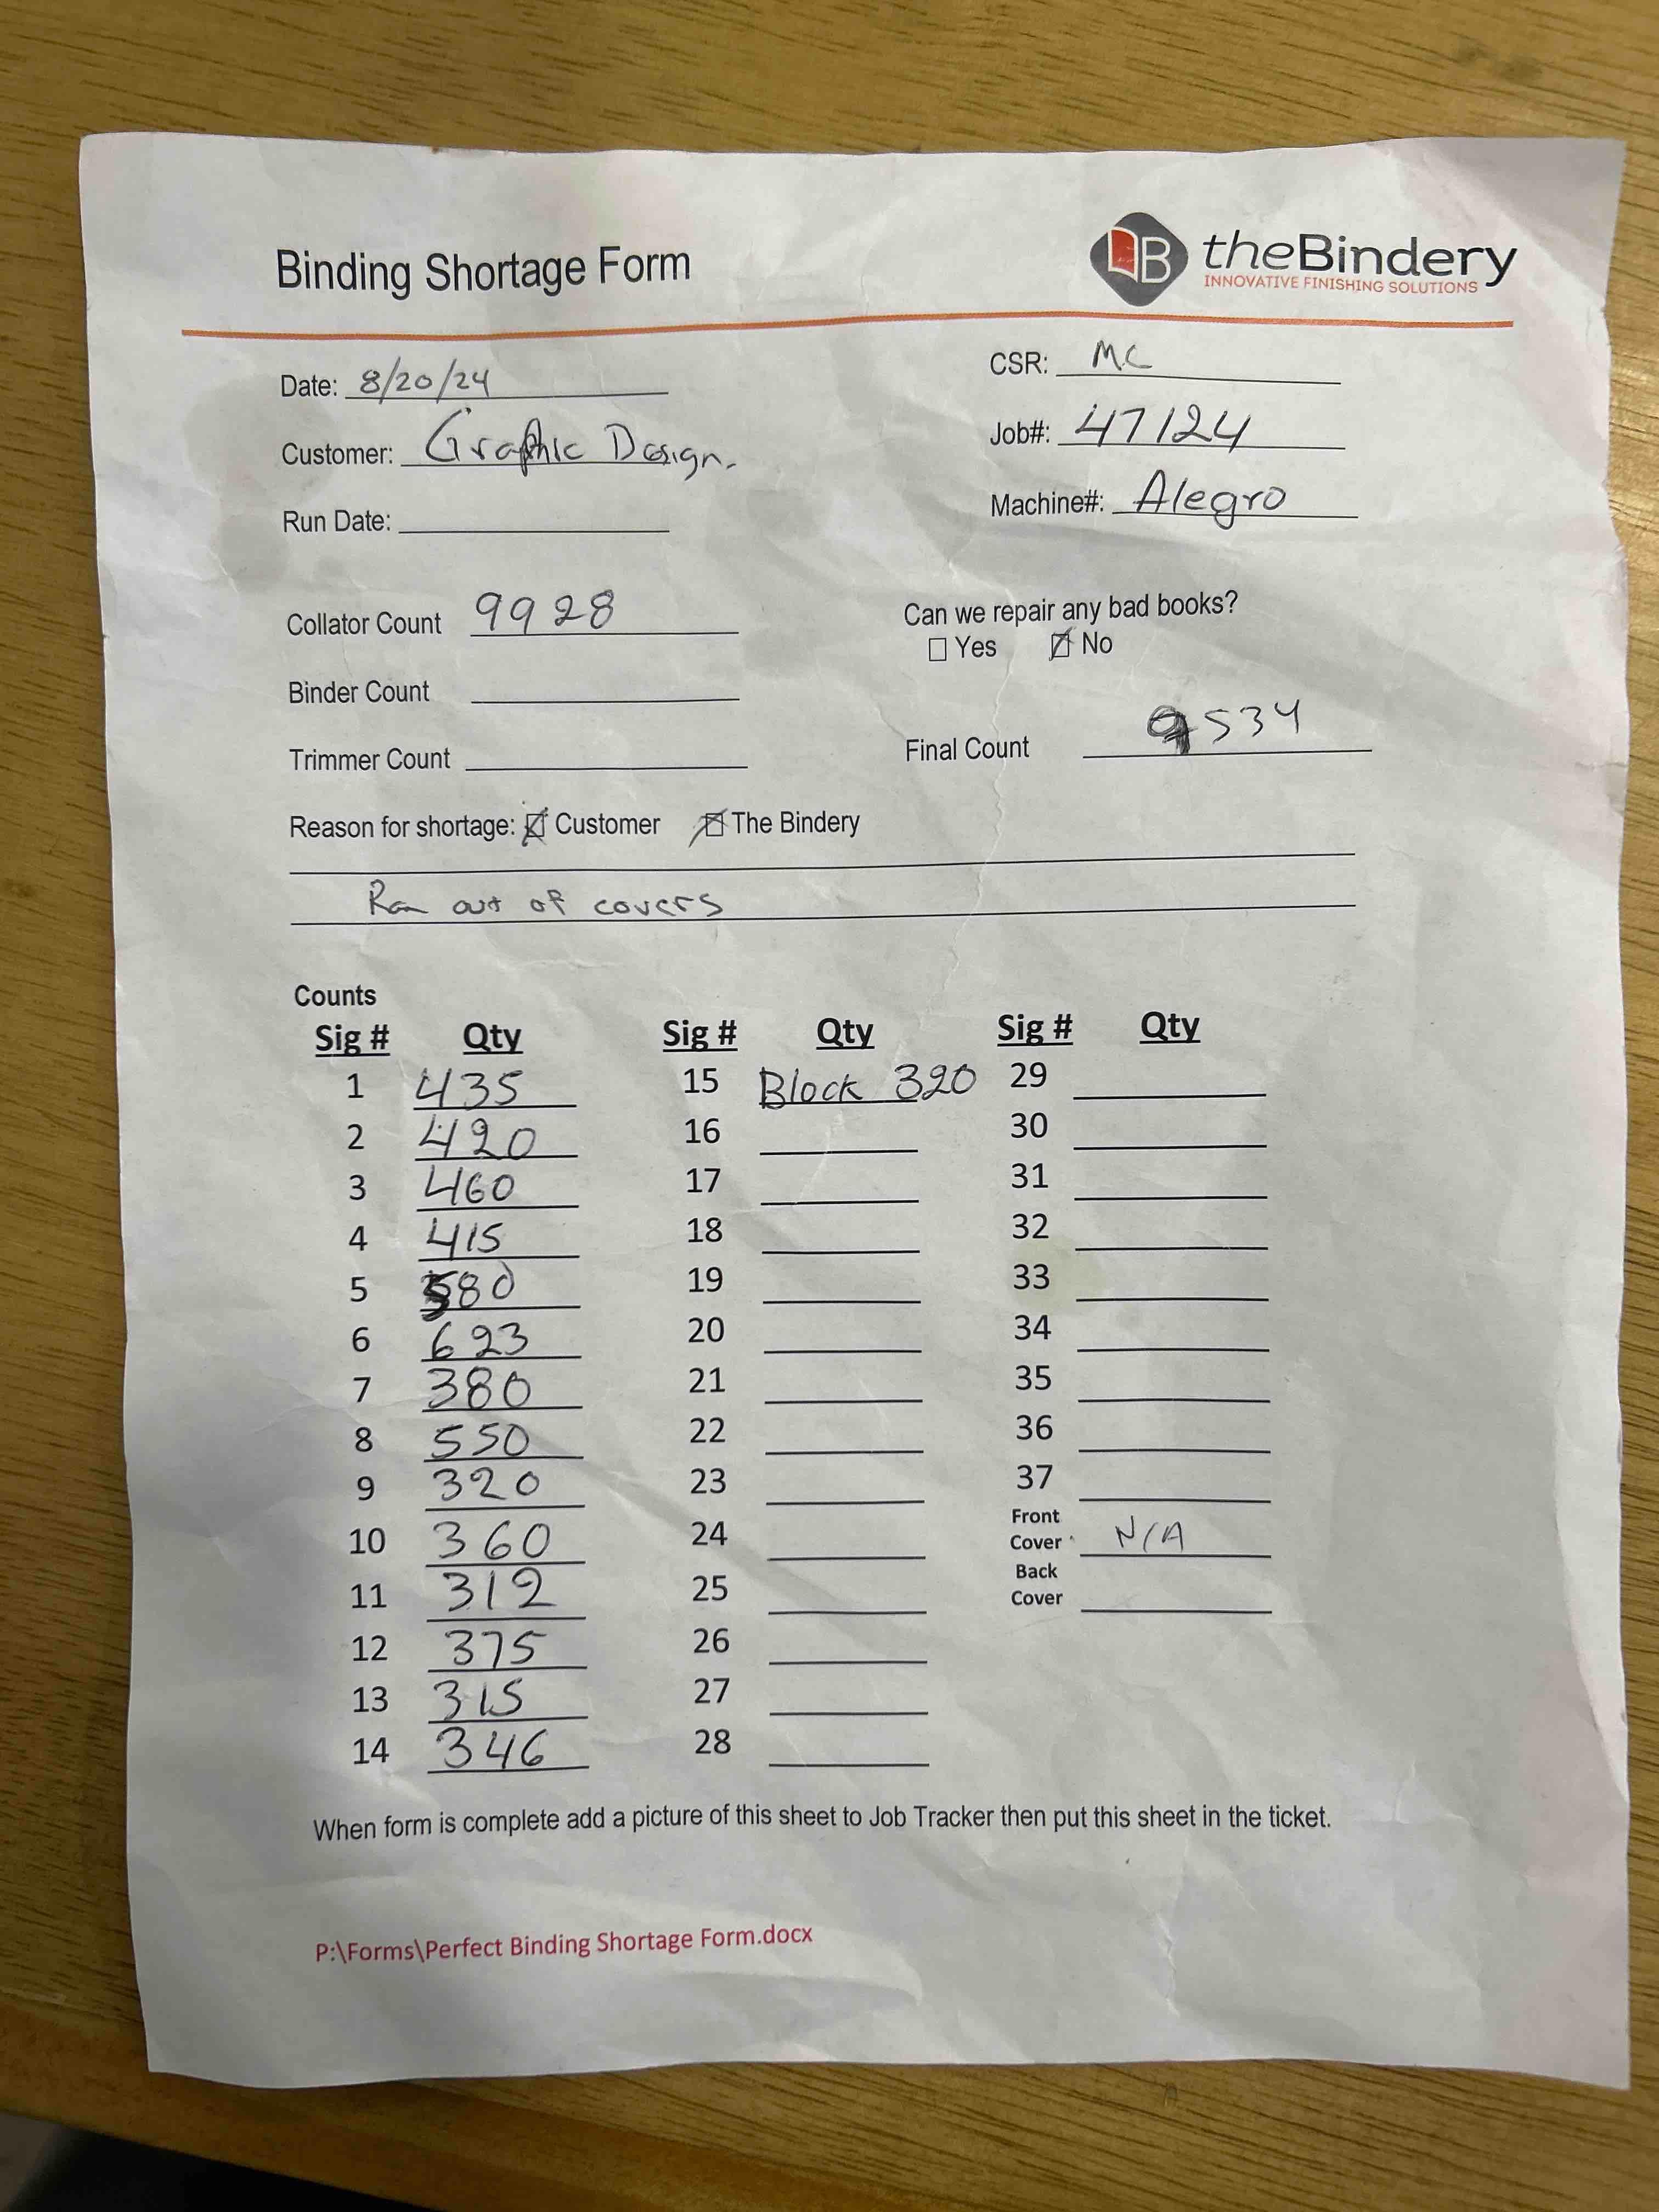 Binding Shortage Form
theBindery
INNOVATIVE FINISHING SOLUTIONS
Date: 8/20/24
CSR: MC
Customer: Graphic Design.
Job#: 47124
Run Date:
Machine#: Alegro
Collator Count 9928
Can we repair any bad books?
☐ Yes ☒ No
Binder Count
Trimmer Count
Final Count 9534
Reason for shortage: ☒ Customer ☒ The Bindery
Ran out of covers
Counts
Sig # Qty Sig # Qty Sig # Qty
1 435 15 Block 320 29
2 420 16 30
3 460 17 31
4 415 18 32
5 580 19 33
6 623 20 34
7 380 21 35
8 550 22 36
9 320 23 37
10 360 24 Front Cover N/A
11 312 25 Back Cover
12 375 26
13 315 27
14 346 28
When form is complete add a picture of this sheet to Job Tracker then put this sheet in the ticket.
P:\Forms\Perfect Binding Shortage Form.docx